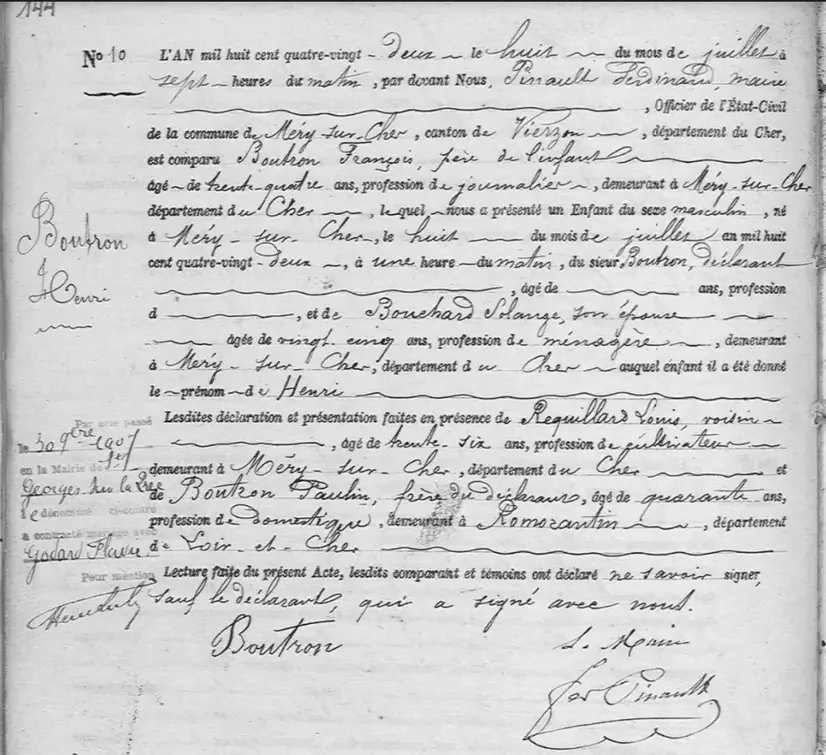 144
No 10 L'AN mil huit cent quatre-vingt-deux le huit du mois de juillet à
sept heures du matin, par devant Nous, Pinault Ferdinand, maire
, Officier de l'État-Civil
de la commune de Méry-sur-Cher, canton de Vierzon, département du Cher,
est comparu Boutron François, père de l'enfant
âgé de trente-quatre ans, profession de journalier, demeurant à Méry-sur-Cher
département du Cher, lequel nous a présenté un Enfant du sexe masculin, né
à Méry-sur-Cher, le huit du mois de juillet an mil huit
cent quatre-vingt-deux, à une heure du matin, du sieur Boutron, déclarant
, âgé de ans, profession
d , et de Bouchard Solange, son épouse
âgée de vingt cinq ans, profession de ménagère, demeurant
à Méry-sur-Cher, département du Cher auquel enfant il a été donné
le prénom de Henri
Boutron
Henri
Lesdites déclaration et présentation faites en présence de Requillard Louis, voisin
, âgé de trente six ans, profession de cultivateur
demeurant à Méry-sur-Cher, département du Cher et
de Boutron Paulin, frère du déclarant, âgé de quarante ans,
profession de domestique, demeurant à Romorantin, département
de Loir-et-Cher
Lecture faite du présent Acte, lesdits comparant et témoins ont déclaré ne savoir signer,
sauf le déclarant, qui a signé avec nous.
Par acte passé
le 30 9bre 1907
en la Mairie de St
Georges sur la Prée
le dénommé ci-contre
a contracté mariage avec
Godard
Pour mention
Boutron
Le Maire
Fer Pinault